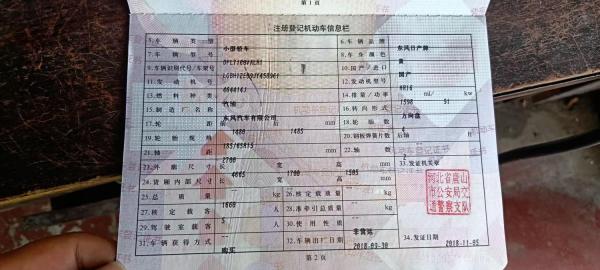 第1页
注册登记机动车信息栏
5.车辆类型 小型轿车 6.车辆品牌 东风日产牌
7.车辆型号 8.车身颜色 黄
9.车辆识别代号/车架号 10.国产/进口 国产
11.发动机号 12.发动机型号 HR16
13.燃料种类 汽油 14.排量/功率 1598 ml/ 91 kw
15.制造厂名称 东风汽车有限公司 16.转向形式 方向盘
17.轮距 前 1480 后 1485 mm 18.轮胎数 4
19.轮胎规格 185/65R15 20.钢板弹簧片数 后轴 片
21.轴距 2700 mm 22.轴数 2
23.外廓尺寸 长 4665 宽 1700 高 1505 mm 33.发证机关章
24.货厢内部尺寸 长 宽 高 mm
25.总质量 kg 26.核定载质量 kg
27.核定载客 5 人 28.准牵引总质量 kg
29.驾驶室载客 人 30.使用性质 非营运
31.车辆获得方式 购买 32.车辆出厂日期 2018-09-30 34.发证日期 2018-11-05
河北省唐山
市公安局交
通警察支队
第2页